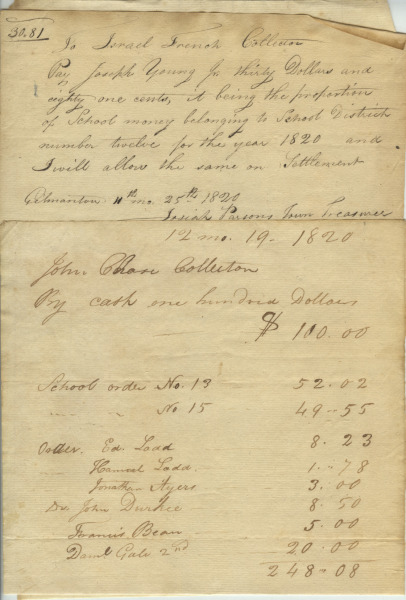 30.81
To Israel French Collector
Pay Joseph Young Jr thirty Dollars and
eighty one cents, it being the proportion
of School money belonging to School District
number twelve for the year 1820 and
I will allow the same on Settlement
Gilmanton 11th mo. 25th 1820
Josiah Parsons Town Treasurer
12 mo. 19 - 1820
John Chase Collector
By cash one hundred Dollars
$ 100.00
School order No. 13 52-02
" " No 15 49-55
Order. Ed. Ladd 8-23
Ladd. 1-78
Jonathan Ayers 3.00
Do. John Durkee 8-50
Francis Bean 5.00
Danl. Gale 2nd 20.00
248-08